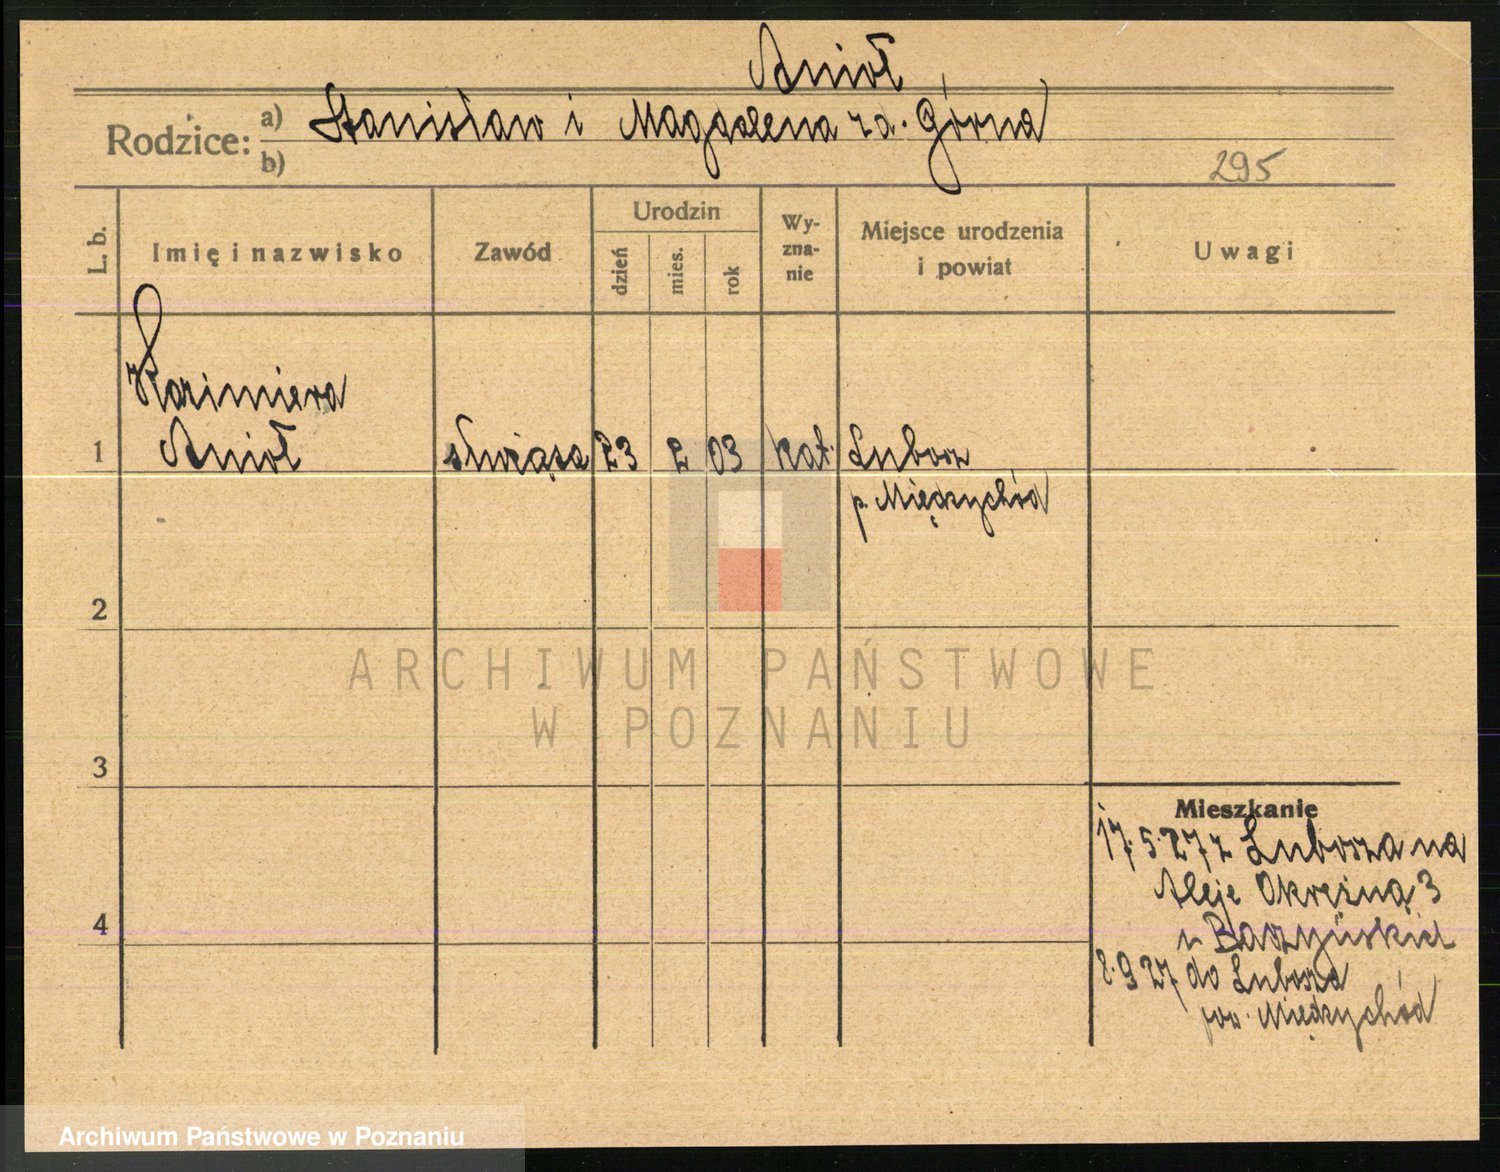 Anioł
Rodzice: a) Stanisław i Magdalena z d. Górna
b)
295
L. b.
Imię i nazwisko
Zawód
Urodzin
dzień
mies.
rok
Wy-
zna-
nie
Miejsce urodzenia
i powiat
Uwagi
Kazimiera
1 Anioł służąca 23 2 03 kat. Lubosz
p. Międzychód
2
ARCHIWUM PAŃSTWOWE
W POZNANIU
3
Mieszkanie
17.5.27 z Lubosza na
Aleje Okrężną 3
4
8.9 27 do Lubosza
pow. Międzychód
Archiwum Państwowe w Poznaniu